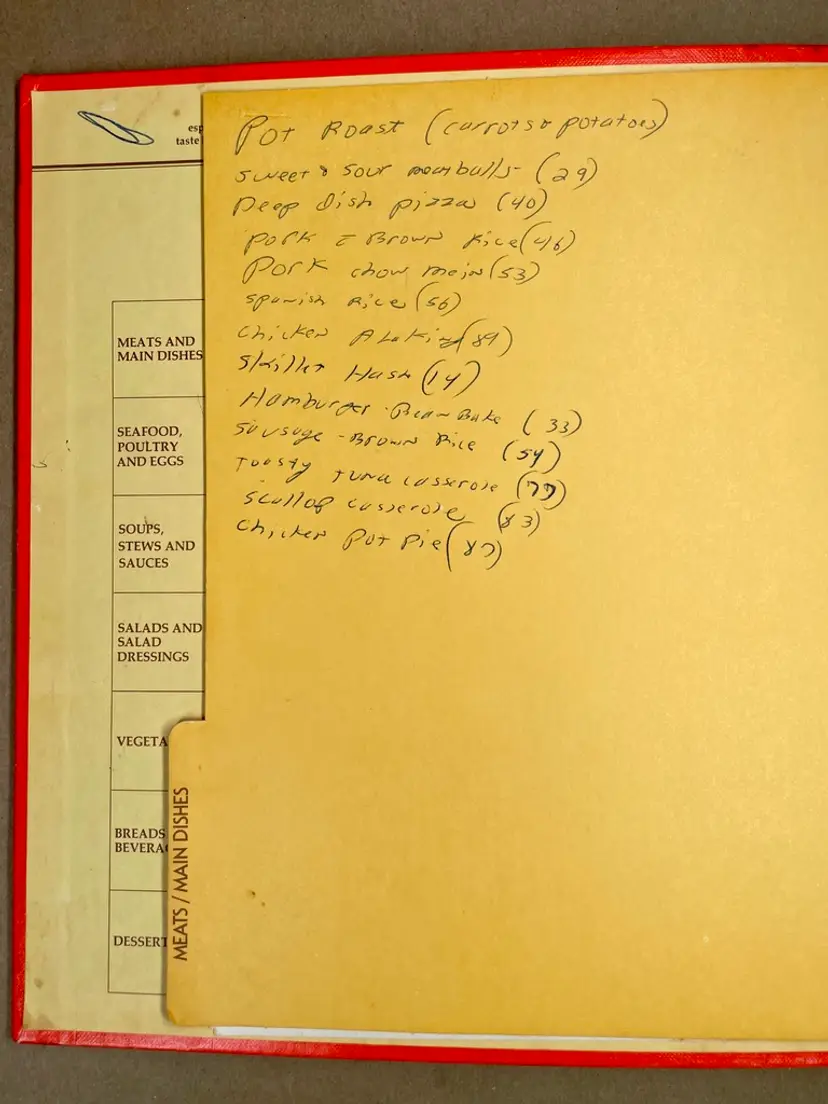 esp
taste
Pot Roast (carrots & potatoes)
sweet & sour meatballs (29)
Deep Dish pizza (40)
Pork c̄ Brown Rice (46)
Pork chow mein (53)
spanish Rice (56)
Chicken Ala King (89)
Skillet Hash (14)
Hamburger-Bean Bake (33)
Sausage-Brown Rice (54)
Toasty tuna casserole (77)
Scallop casserole (83)
Chicken Pot Pie (87)
MEATS AND
MAIN DISHES
SEAFOOD,
POULTRY
AND EGGS
SOUPS,
STEWS AND
SAUCES
SALADS AND
SALAD
DRESSINGS
VEGETA
BREADS
BEVERA
DESSERT
MEATS / MAIN DISHES